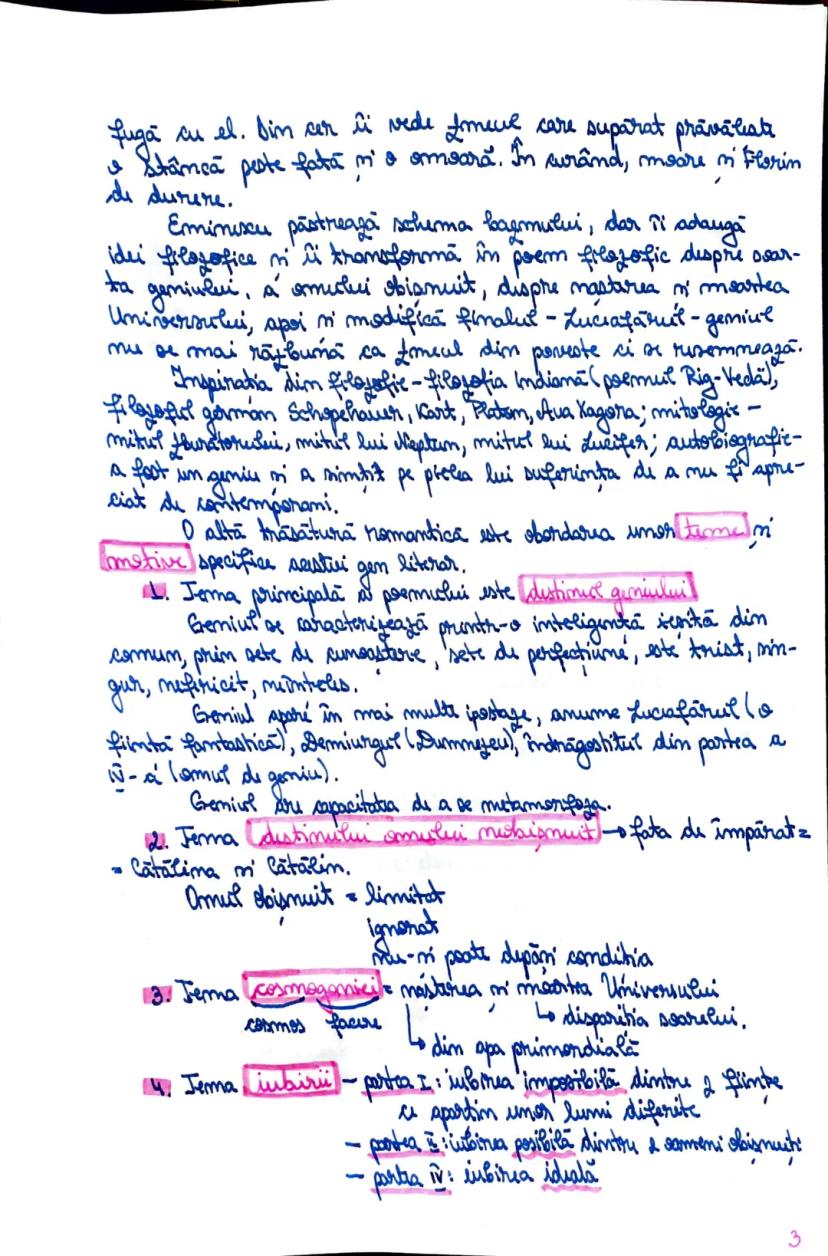 fugă cu el. Din cer îi vede zmeul care supărat prăvălește
o stâncă peste fată și o omoară. În curând, moare și Florin
de durere.
Eminescu păstrează schema basmului, dar îi adaugă
idei filozofice și îl transformă în poem filozofic despre soar-
ta geniului, a omului obișnuit, despre nașterea și moartea
Universului, apoi și modifică finalul - Luceafărul - geniul
nu se mai răzbună ca zmeul din poveste ci se resemnează.
Inspirația din filozofie - filozofia Indiană (poemul Rig-Vedă),
filozoful german Schopehauer, Kart, Platon, Ava Xagora; mitologie -
mitul zburătorului, mitul lui Neptun, mitul lui Lucifer; autobiografie-
a fost un geniu și a simțit pe pielea lui suferința de a nu fi apre-
ciat de contemporani.
O altă trăsătură romantică este abordarea unor teme și
motive specifice acestui gen literar.
1. Tema principală a poemului este destinul geniului
Geniul se caracterizează printr-o inteligență ieșită din
comun, prin sete de cunoaștere, sete de perfecțiune, este trist, sin-
gur, nefericit, neînțeles.
Geniul apare în mai multe ipostaze, anume Luceafărul (o
ființă fantastică), Demiurgul (Dumnezeu), îndrăgostitul din partea a
IV-a (omul de geniu).
Geniul are capacitatea de a se metamorfoza.
2. Tema destinului omului neobișnuit → fata de împărat =
= Cătălina și Cătălin.
Omul obișnuit = limitat
ignorat
nu-și poate depăși condiția
3. Tema cosmogoniei = nașterea și moartea Universului
cosmos facere ↳ dispariția soarelui.
↳ din apa primordială
4. Tema iubirii - partea I: iubirea imposibilă dintre 2 ființe
ce aparțin unor lumi diferite
- partea II: iubirea posibilă dintre 2 oameni obișnuiți
- partea IV: iubirea ideală
3